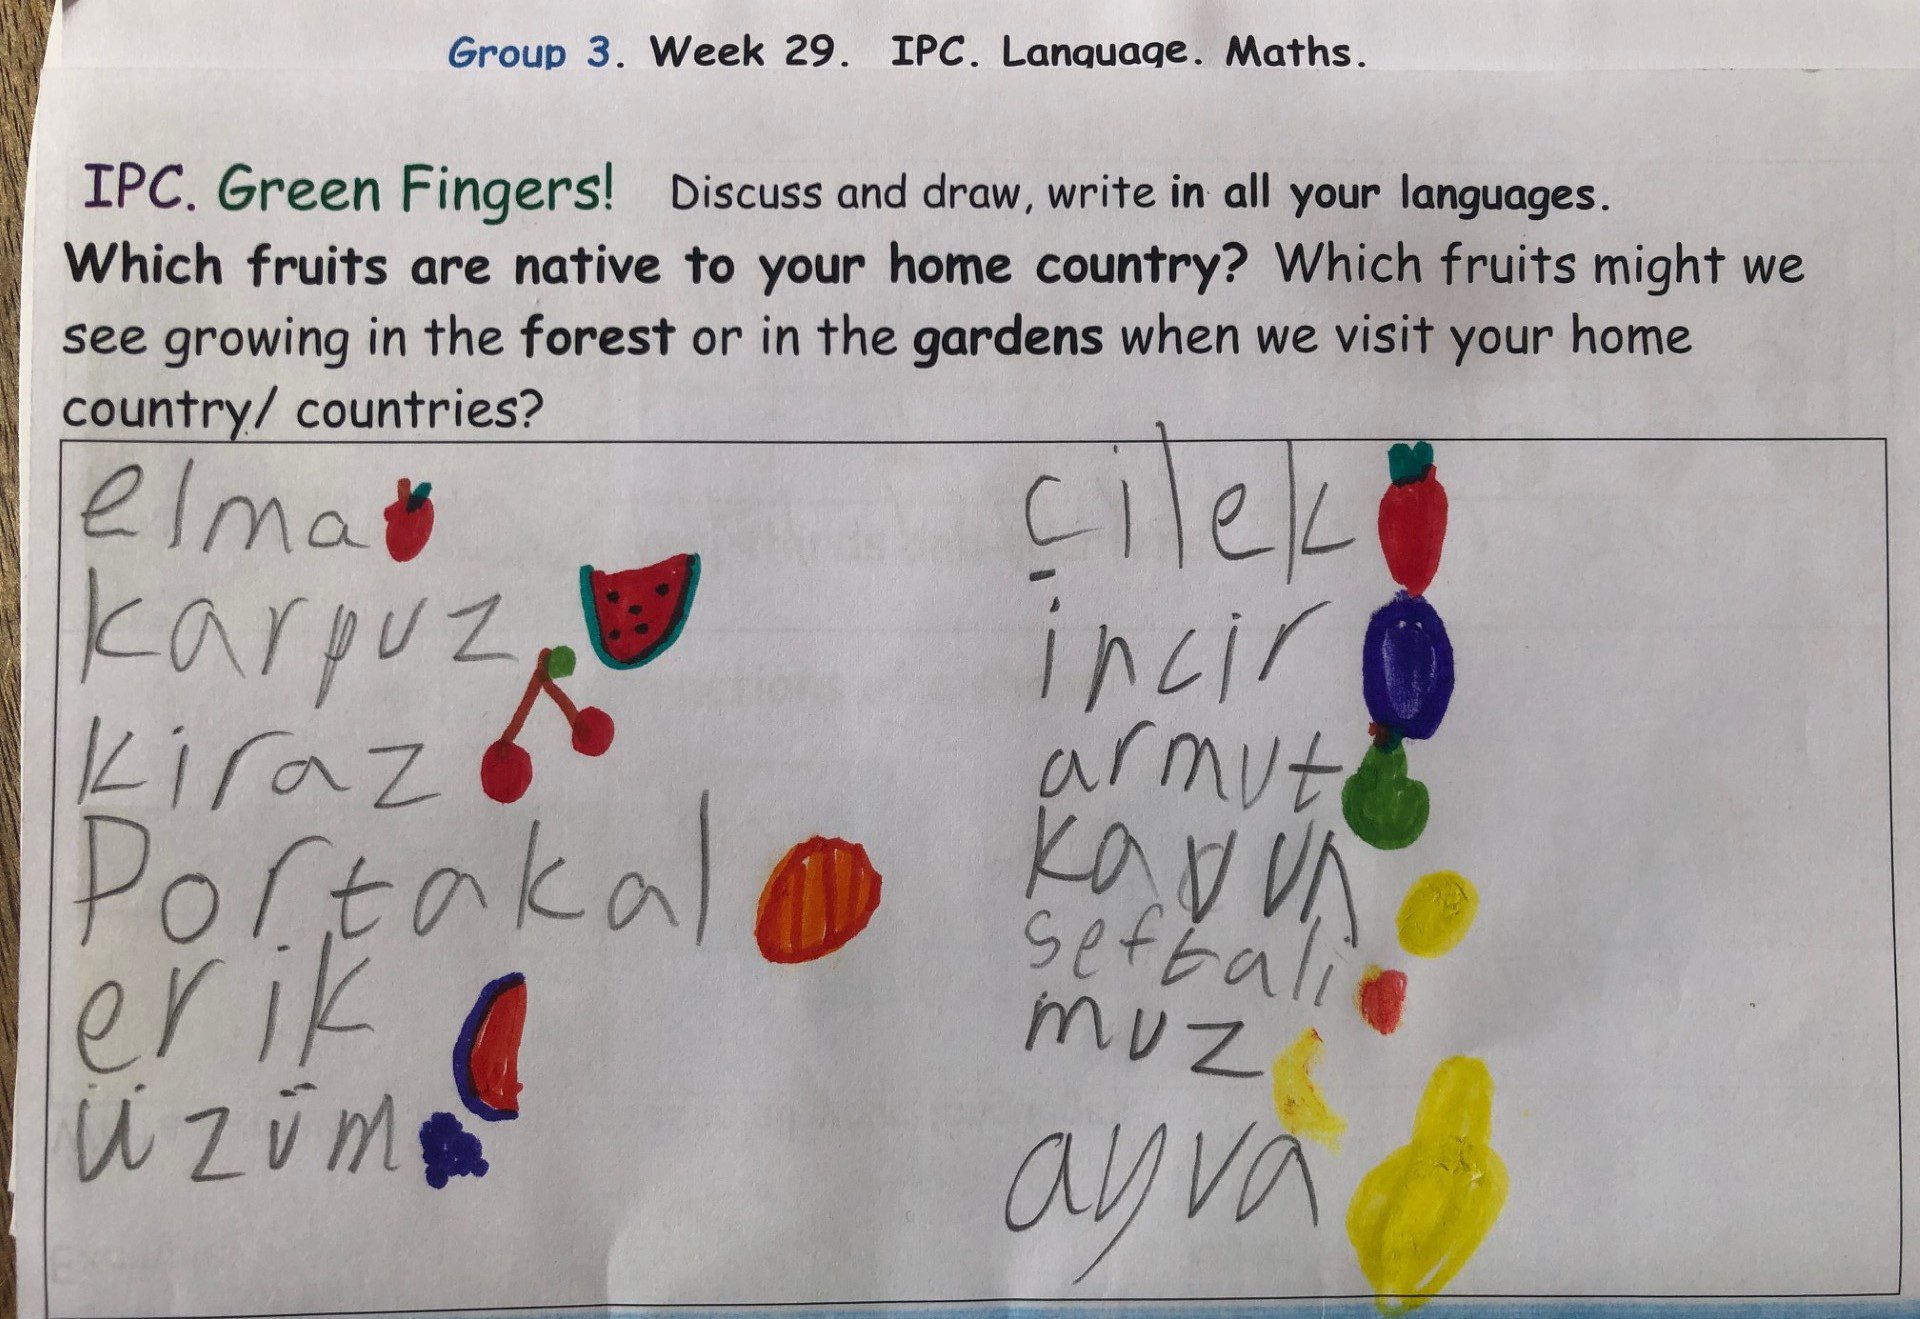 Group 3. Week 29. IPC. Language. Maths.
IPC. Green Fingers! Discuss and draw, write in all your languages.
Which fruits are native to your home country? Which fruits might we
see growing in the forest or in the gardens when we visit your home
country/ countries?
elma
karpuz
kiraz
Portakal
erik
üzüm
çilek
incir
armut
kavun
seftali
muz
ayva